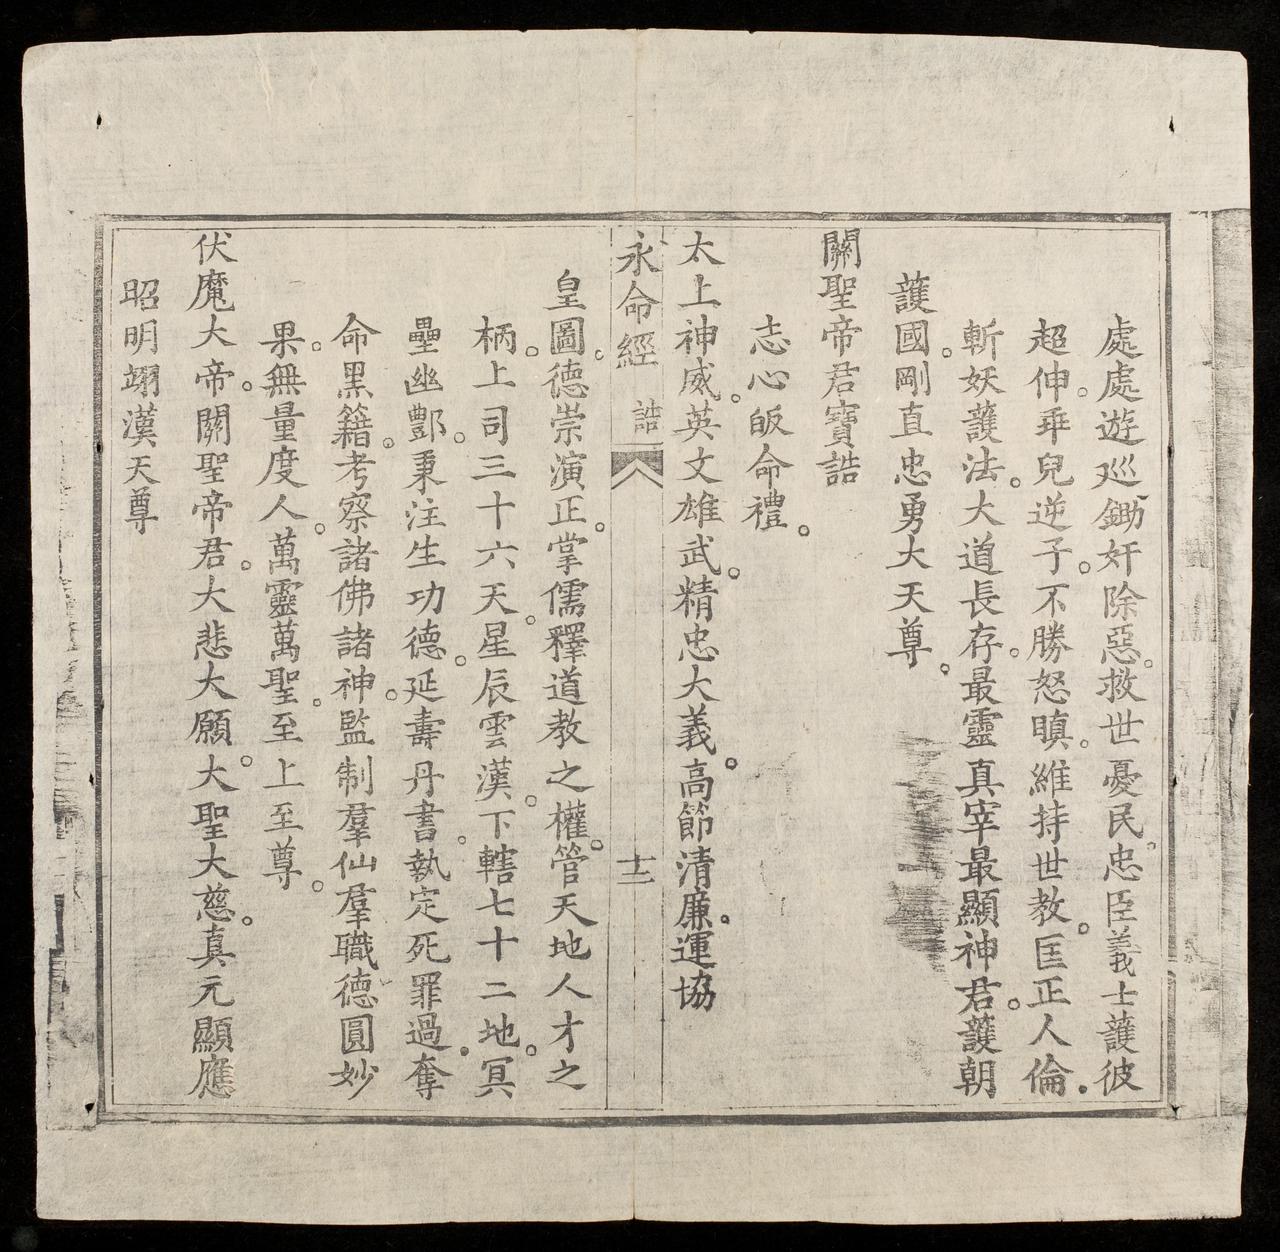 處處遊巡鋤奸除惡。救世憂民。忠臣義士護彼
超伸。乖兒逆子。不勝怒瞋。維持世教。匡正人倫。
斬妖護法。大道長存。最靈真宰最顯神君。護朝
護國。剛直忠勇大天尊。
關聖帝君寶誥
志心皈命禮。
太上神威。英文雄武。精忠大義。高節清廉。運協
永命經 誥 十二
皇圖。德崇演正。掌儒釋道教之權。管天地人才之
柄。上司三十六天。星辰雲漢。下轄七十二地。冥
壘幽酆。秉注生功德。延壽丹書。執定死罪過。奪
命黑籍。考察諸佛諸神。監制羣仙羣職德圓妙
果。無量度人。萬靈萬聖。至上至尊。
伏魔大帝。關聖帝君。大悲大願。大聖大慈。真元顯應
昭明翊漢天尊